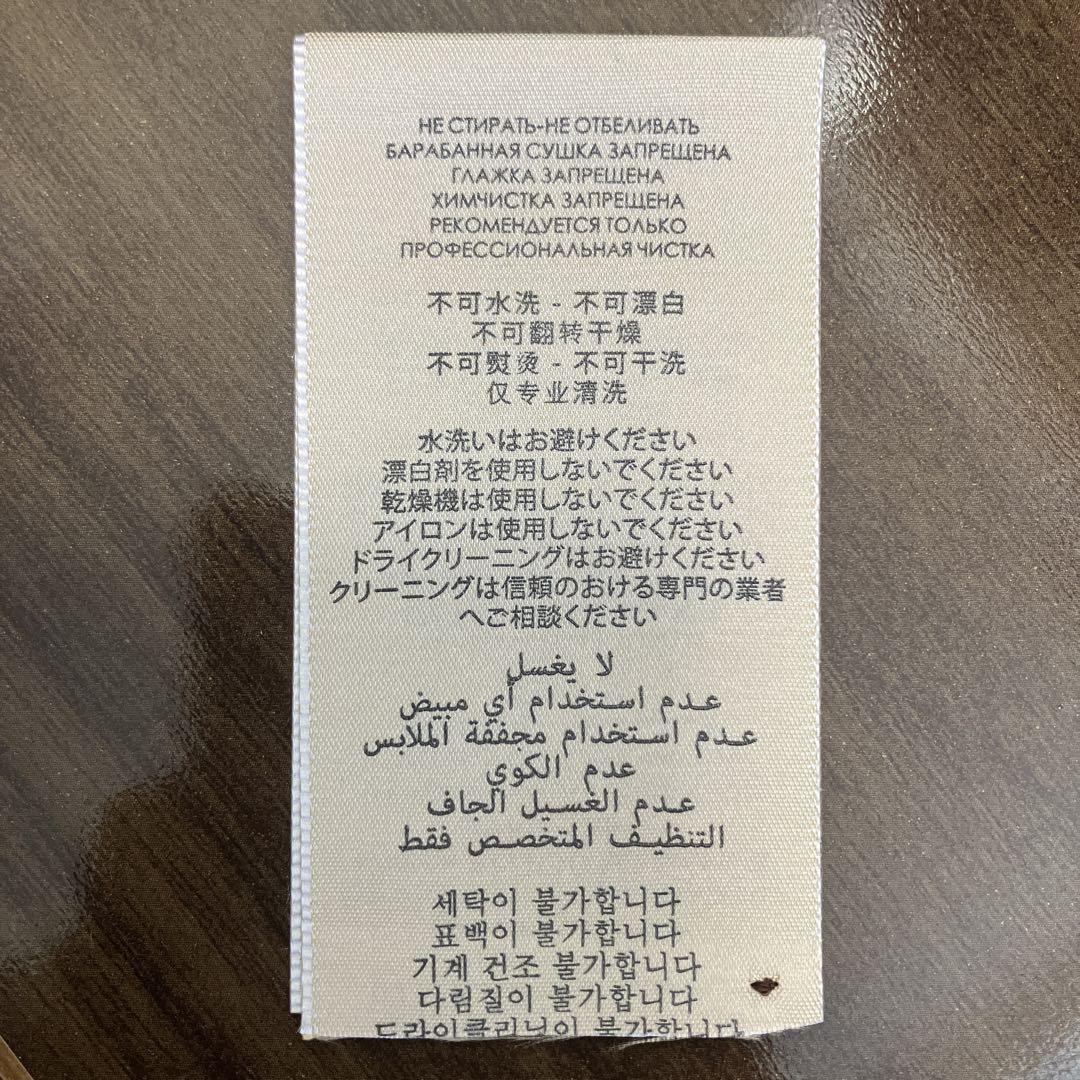 НЕ СТИРАТЬ-НЕ ОТБЕЛИВАТЬ
БАРАБАННАЯ СУШКА ЗАПРЕЩЕНА
ГЛАЖКА ЗАПРЕЩЕНА
ХИМЧИСТКА ЗАПРЕЩЕНА
РЕКОМЕНДУЕТСЯ ТОЛЬКО
ПРОФЕССИОНАЛЬНАЯ ЧИСТКА
不可水洗 - 不可漂白
不可翻转干燥
不可熨烫 - 不可干洗
仅专业清洗
水洗いはお避けください
漂白剤を使用しないでください
乾燥機は使用しないでください
アイロンは使用しないでください
ドライクリーニングはお避けください
クリーニングは信頼のおける専門の業者
へご相談ください
لا يغسل
عدم استخدام أي مبيض
عدم استخدام مجففة الملابس
عدم الكوي
عدم الغسيل الجاف
التنظيف المتخصص فقط
세탁이 불가합니다
표백이 불가합니다
기계 건조 불가합니다
다림질이 불가합니다
드라이클리닝이 불가합니다